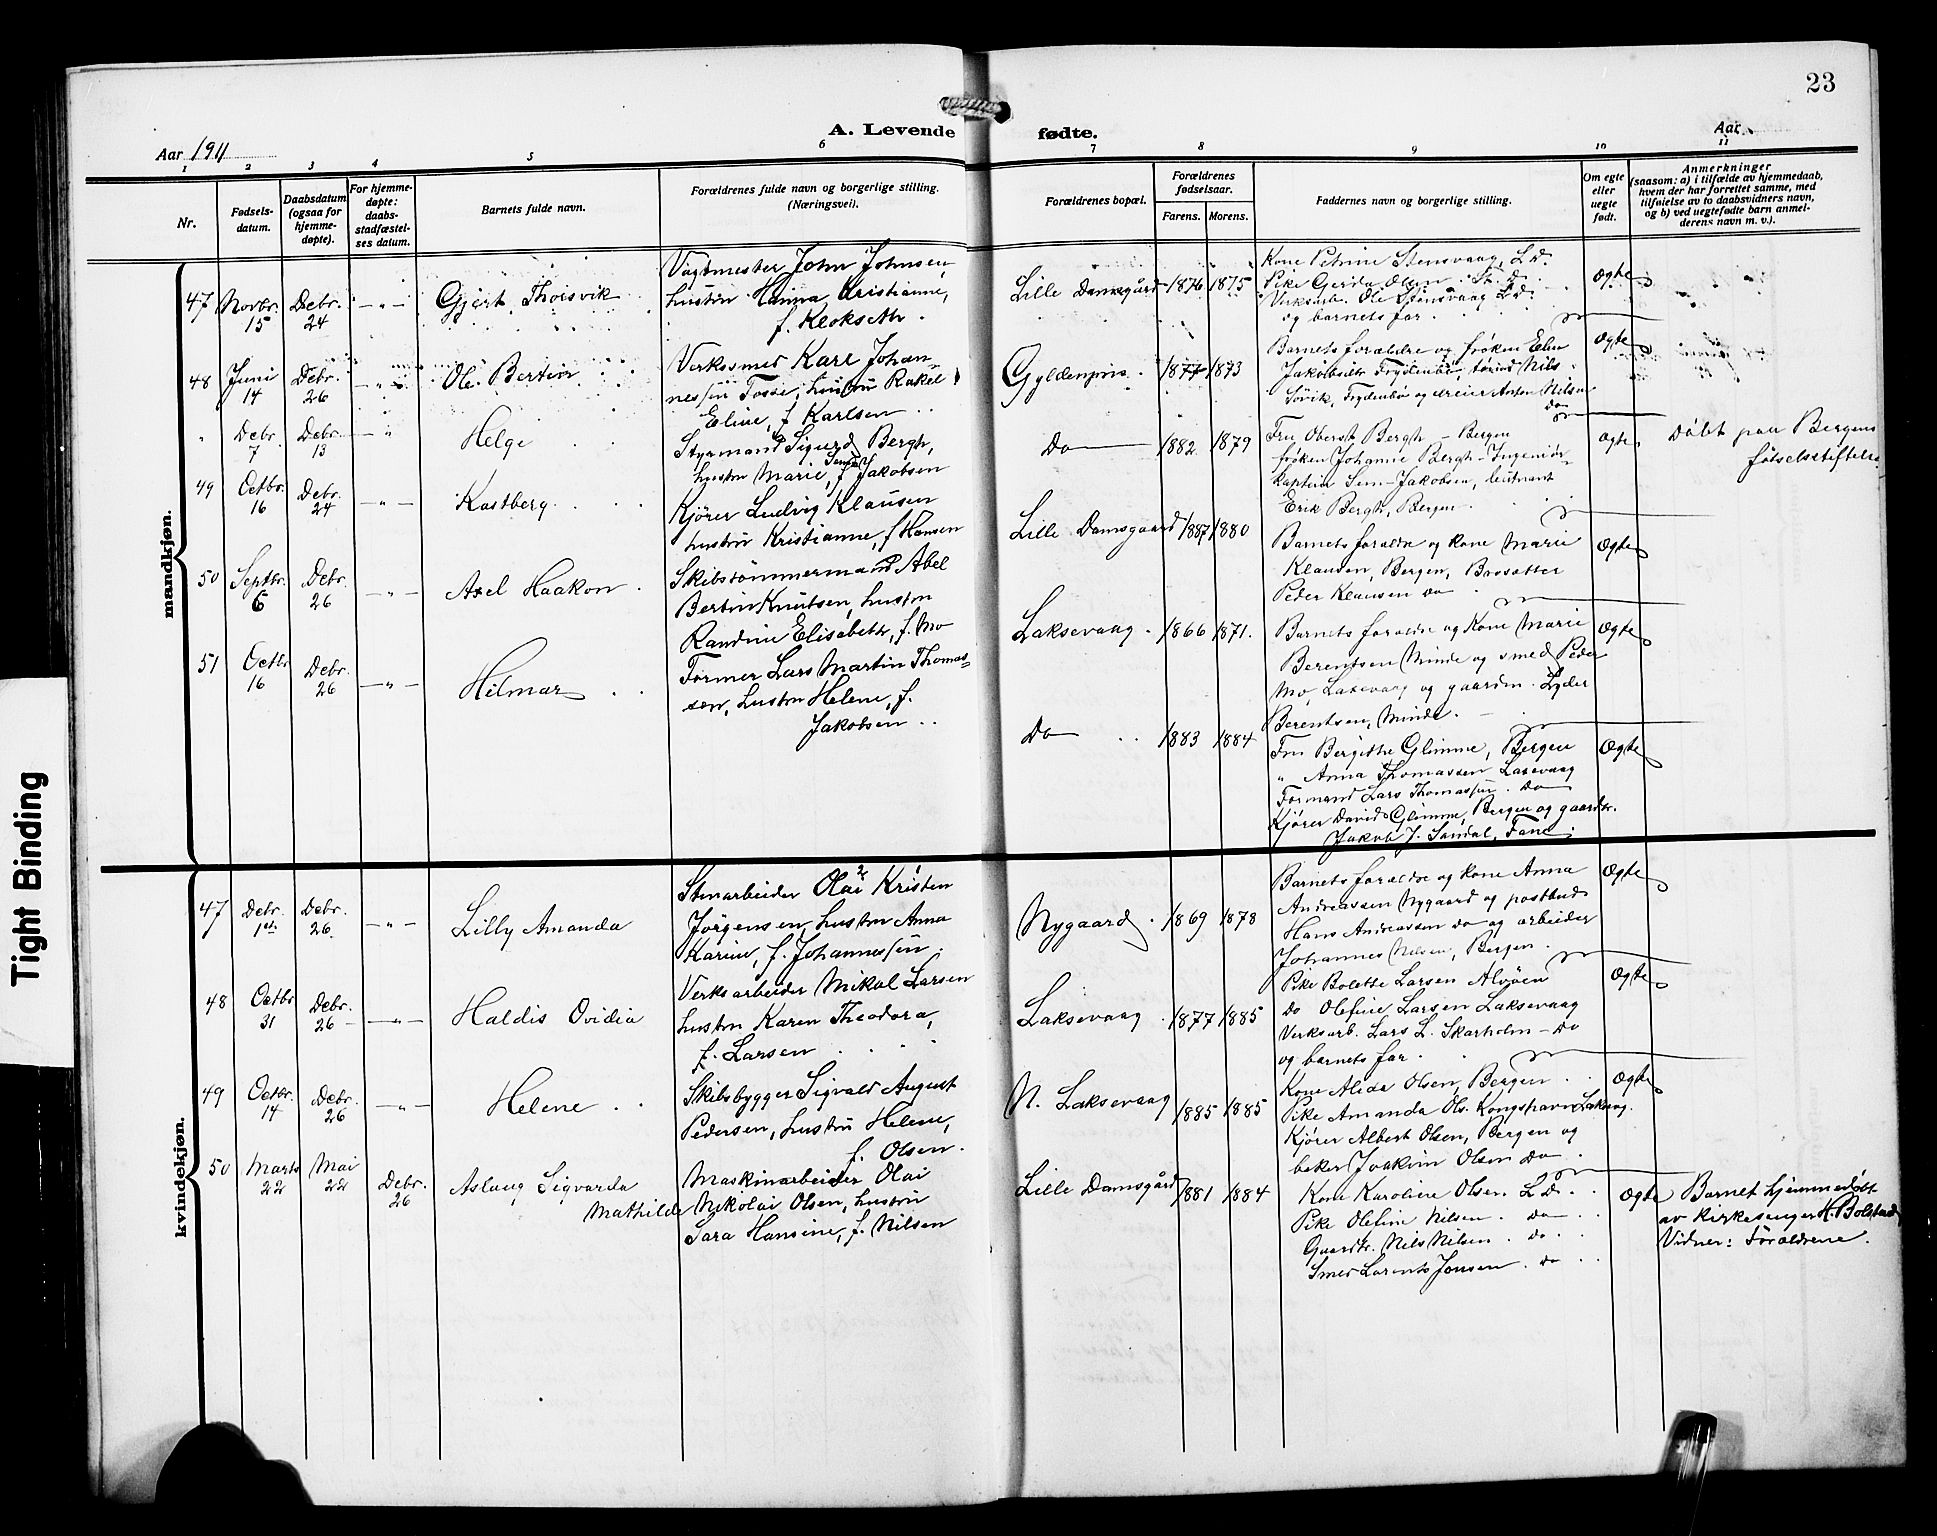 23
A. Levende fødte.
Aar 1911
Aar
1 2 3 4 5 6 7 8 9 10 11
Nr.
Fødsels-
datum.
Daabsdatum
(ogsaa for
hjemme-
døpte).
For hjemme-
døpte:
daabs-
stadfæstel-
ses datum.
Barnets fulde navn.
Forældrenes fulde navn og borgerlige stilling.
(Næringsvei).
Forældrenes bopæl.
Forældrenes
fødselsaar.
Farens. Morens.
Faddernes navn og borgerlige stilling.
Om egte
eller
uegte
født.
Anmerkninger
(saasom: a) i tilfælde av hjemmedaab,
hvem der har forrettet samme, med
tilføielse av to daabsvidners navn,
og b) ved uegtefødte barn anmel-
derens navn m. v.).
mandkjøn.
47 Novbr. 15 Debr. 24 -„- Gjert Thorsvik
Vagtmester John Johnsen,
hustru Hanna Kristianne,
f. Klokseth.
Lille Damsgård 1876 1875
Kone Petrine Stensvaag, L D.
Pike Gerda Olsen St. D.
Verksarb. Ole Stensvaag L D.
og barnets far.
Ægte
48 Juni 14 Debr. 26 -„- Ole Bertin
Verksmed Karl Johan
nessen Fosse, hustru Rakel
Eline, f. Karlsen
Gyldenpris. 1877 1873
Barnets forældre og frøken Elen
Jakobsen Frydenbø, Nils
Søvik, Frydenbø og dreier Anton Nilsen
do
Ægte
„ Debr. 7 Debr. 13 -„- Helge
Styrmand Sigurd Bergh,
hustru Marie, f. Sem Jakobsen
Do 1882 1879
Fru Oberst Bergh - Bergen
frøken Johanne Bergh - Ingeniør
kaptein Sem-Jakobsen, leutnant
Erik Bergh, Bergen.
Ægte
Døbt paa Bergens
fødselsstiftelse
49 Octbr. 16 Debr. 24 -„- Kastberg
Kjører Ludvig Klausen
hustru Kristianne, f Hansen
Lille Damsgaard 1887 1880
Barnets foraldre og kone Marie
Klausen, Bergen, Bøssætter
Peder Klausen do
Ægte
50 Septbr. 6 Debr. 26 -„- Axel Haakon
Skibstømmermand Abel
Bertin Knutsen, hustru
Randine Elisabeth, f. Mo
Laksevaag. 1866 1871.
Barnets foraldre og Kone Marie
Berentsen Minde og smed Peder
Mo, Laksevaag og gaardm. Lyder
Berentsen, Minde.
Ægte
51 Octbr 16 Debr. 26 -„- Hilmar
Former Lars Martin Thomas-
sen, hustru Helene, f.
Jakobsen
Do 1883 1884
Fru Bergithe Glimme, Bergen
„ Anna Thomassen Laxevaag
Formand Lars Thomassen do
Kjører David Glimme, Bergen og gaardbr.
Jakob J. Sandal, Fane.
Ægte
kvindekjøn.
47 Debr. 1ste Debr. 26. -„- Lilly Amanda
Stenarbeider Olai Kristen
Jørgensen, hustru Anna
Karine, f. Johannessen.
Nygaard. 1869 1878
Barnets foraldre og kone Anna
Andreassen Nygaard og postbud
Hans Andreassen do og arbeider
Johannes Nilsen, Bergen.
Ægte
48 Octbr 31 Debr. 26 -„- Haldis Ovidia
Verksarbeider Mikal Larsen
hustru Karen Theodora,
f. Larsen
Laksevaag. 1877 1885
Pike Bolette Larsen Alvøen
do Olefine Larsen Laksevaag
Verksarb. Lars L. Skarholm - do
og barnets far.
Ægte
49 Octbr. 14 Debr. 26 -„- Helene
Skibsbygger Sigvald August
Pedersen, hustru Helene,
f. Olsen.
N. Laksevaag 1885 1885
Kone Alida Olsen, Bergen
Pike Amanda Ols. Kongshavn Laksvaag.
Kjører Albert Olsen, Bergen og
baker Joakim Olsen do
Ægte
50 Marts 22 Mai 22 Debr. 26 Aslaug Sigvarda
Mathilde
Maskinarbeider Olai
Nikolai Olsen, hustru
Sara Hansine, f. Nilsen
Lille Damsgård 1881 1884
Kone Karoline Olsen. L D.
Pike Olefine Nilsen. do
Gaardbr. Nils Nilsen. do.
Smed Lorents Jonsen. do
Ægte
Barnet hjemmedøbt
av kirkesanger H. Bolstad
Vidner: Foraldrene.
Tight Binding